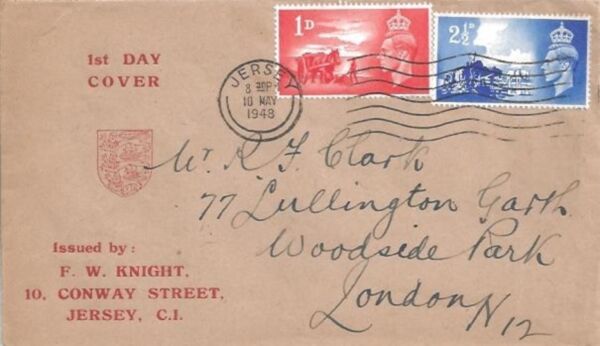 1st DAY
COVER
1D
2½D
JERSEY
10 MAY
1948
Mr R. F. Clark
77 Lullington Garth
Woodside Park
London N12
Issued by :
F. W. KNIGHT,
10, CONWAY STREET,
JERSEY, C.I.